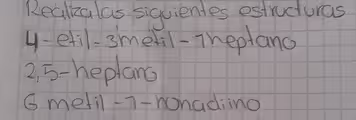 Realiza las siguientes estructuras
4-etil-3metil-1heptano
2,5-heptano
6 metil-1-nonadiino